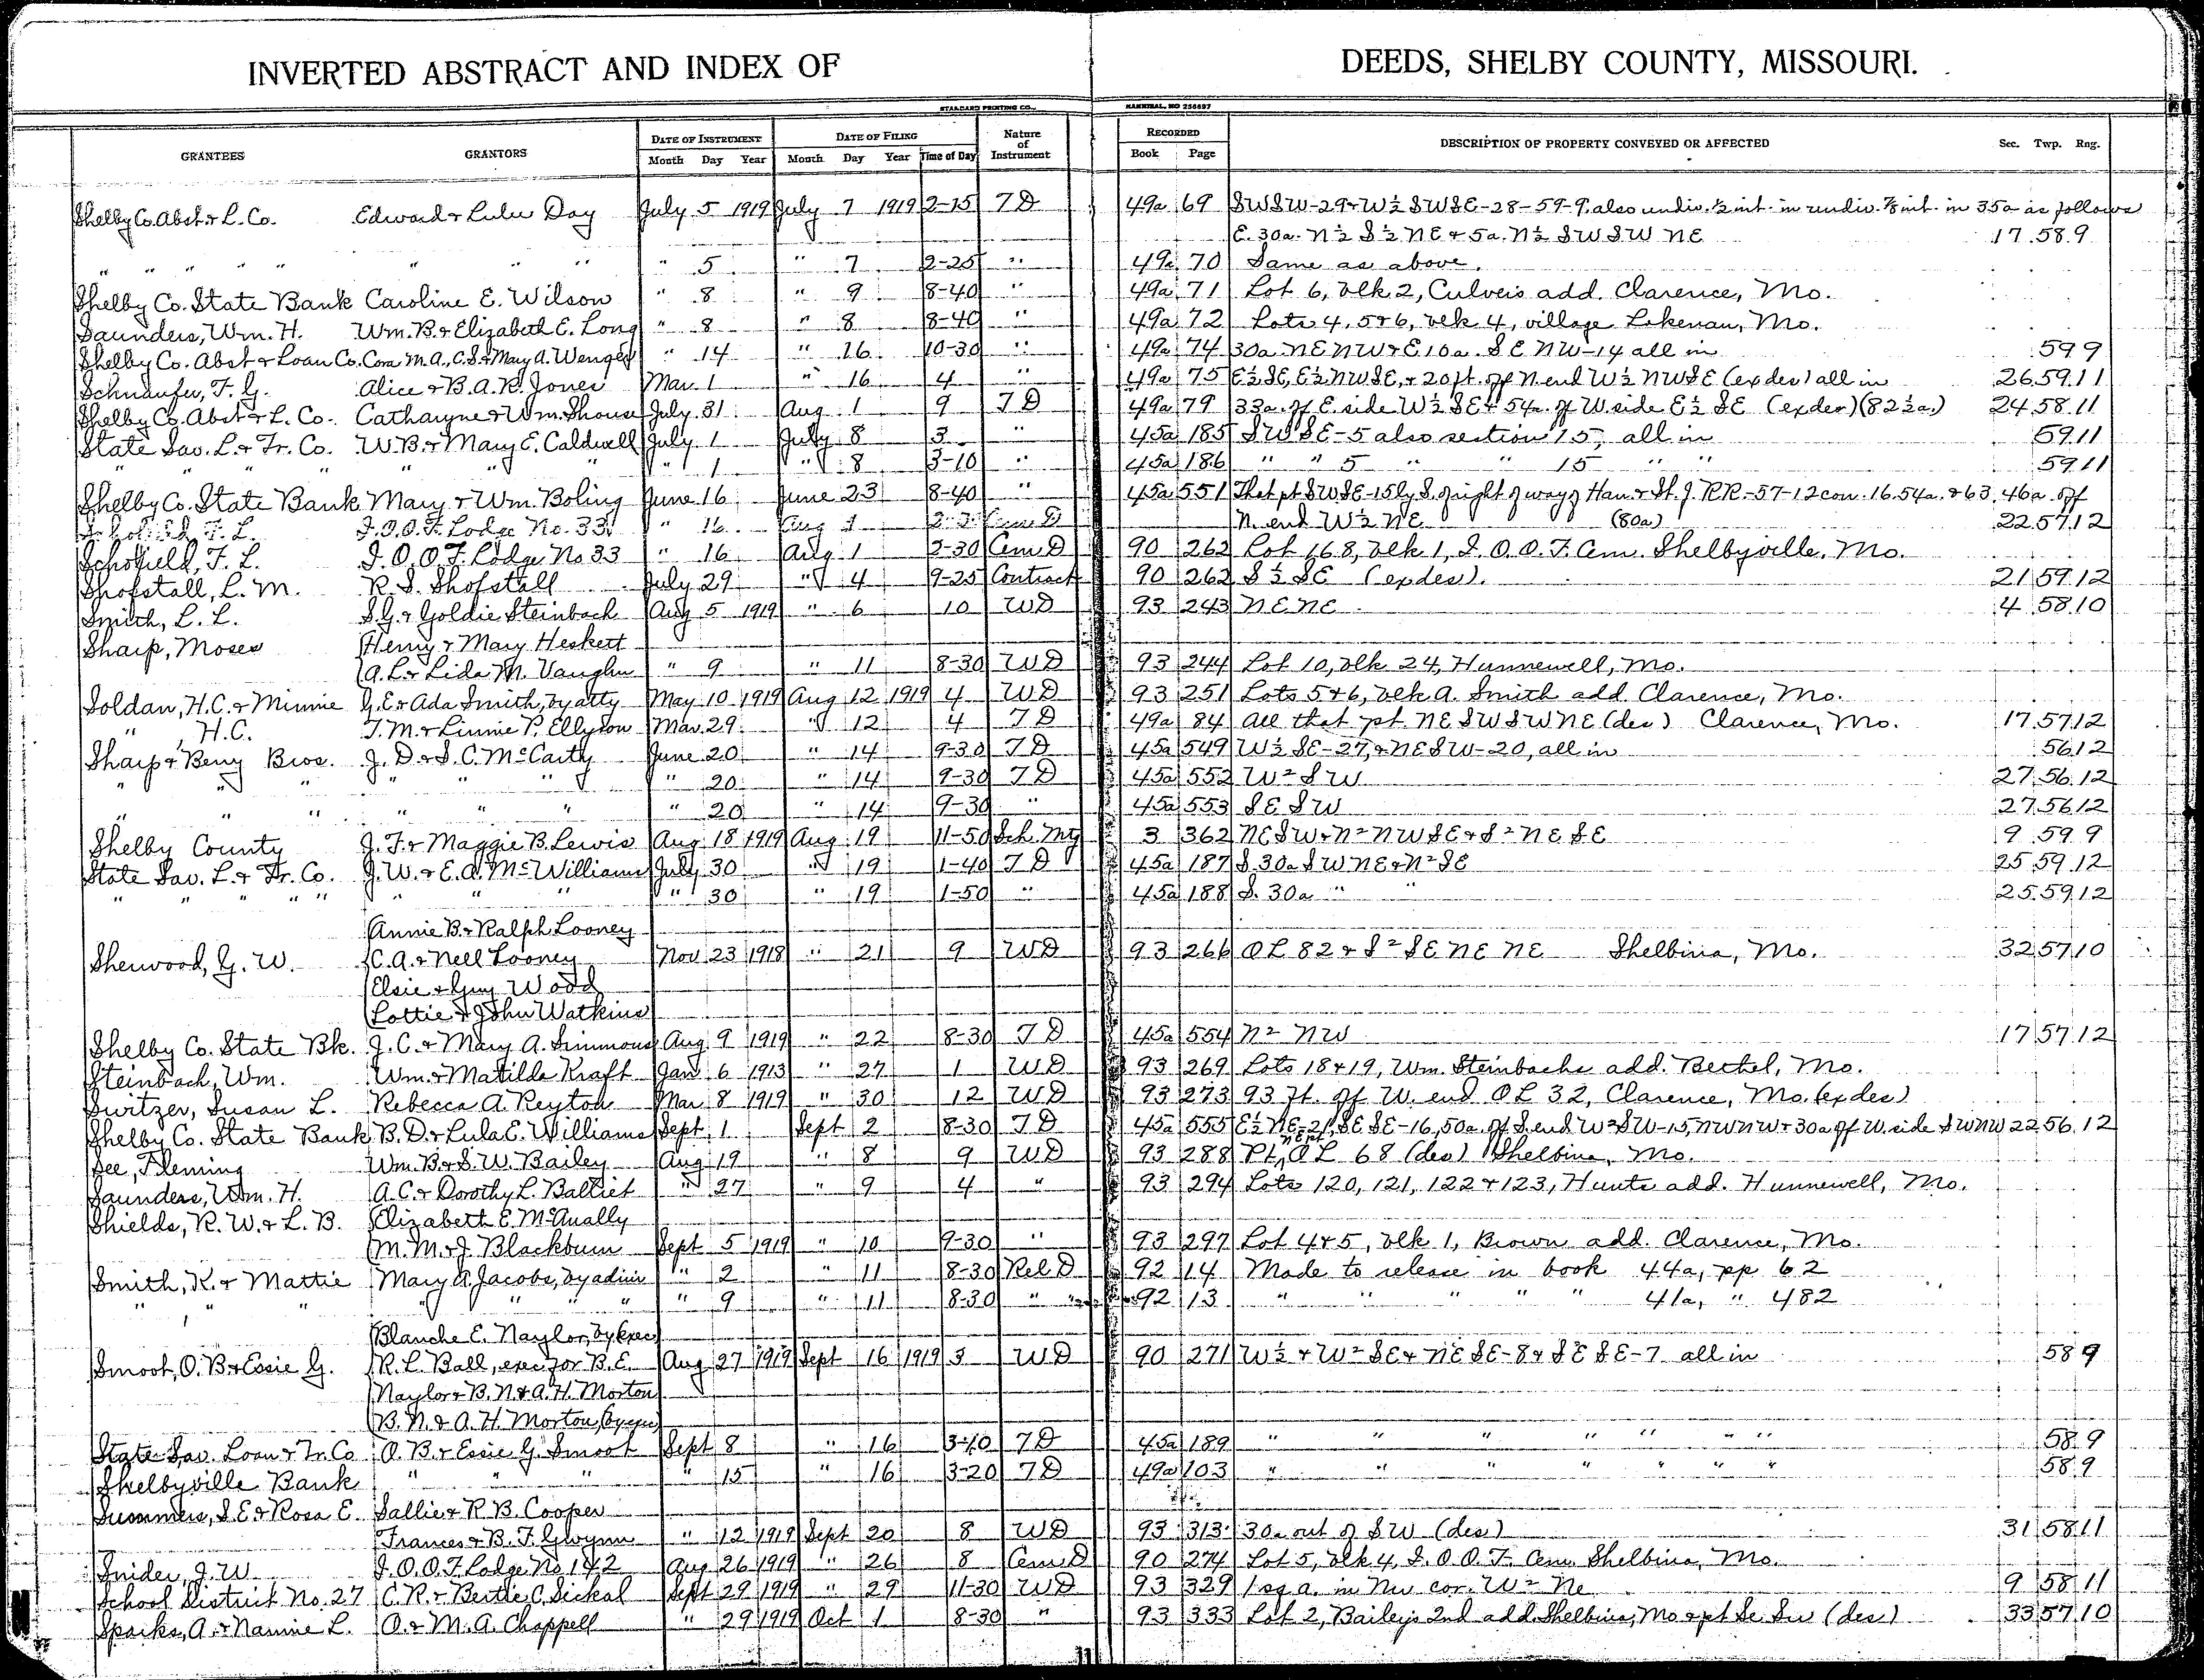 INVERTED ABSTRACT AND INDEX OF DEEDS, SHELBY COUNTY, MISSOURI.
STANDARD PRINTING CO., HANNIBAL, MO 256697
GRANTEES GRANTORS DATE OF INSTRUMENT DATE OF FILING Nature of Instrument RECORDED DESCRIPTION OF PROPERTY CONVEYED OR AFFECTED Sec. Twp. Rng.
Month Day Year Month Day Year Time of Day Book Page
Shelby Co. Abst. & L. Co. Edward & Lulu Day July 5 1919 July 7 1919 2-15 TD 49a 69 SWSW-29 & W½ SWSE-28-59-9, also undiv. ½ int. in undiv. ⅞ int. in 35a as follows
E. 30a. N½ S½ NE & 5a. N½ SW SW NE 17 58 9
" " " " " " " " " 5 " 7 2-25 " 49a 70 Same as above.
Shelby Co. State Bank Caroline E. Wilson " 8 " 9 8-40 " 49a 71 Lot 6, blk 2, Culvers add. Clarence, Mo.
Saunders, Wm. H. Wm. B. & Elizabeth E. Long " 8 " 8 8-40 " 49a 72 Lots 4, 5 & 6, blk 4, village Lakenan, Mo.
Shelby Co. Abst & Loan Co. Cora M. A., C. S. & Mary A. Wenger " 14 " 16 10-30 " 49a 74 30a. NE NW & E 10a. SE NW-14 all in 59 9
Schnaufer, F. G. Alice & B. A. R. Jones Mar. 1 " 16 4 " 49a 75 E½ SE, E½ NWSE, & 20 ft. off N. end W½ NWSE (ex des) all in 26 59 11
Shelby Co. Abst & L. Co. Catharyne & Wm. Shouse July 31 Aug. 1 9 TD 49a 79 33a. off E. side W½ SE & 54a. off W. side E½ SE (ex des) (82½a.) 24 58 11
State Sav. L. & Tr. Co. W. B. & Mary E. Caldwell July 1 July 8 3 " 45a 185 SW SE-5 also section 15, all in 59 11
" " " " " " " " 1 " 8 3-10 " 45a 186 " " 5 " " 15 " " 59 11
Shelby Co. State Bank Mary & Wm. Boling June 16 June 23 8-40 " 45a 551 That pt SWSE-15 ly S. of right of way of Han. & St. J. RR.-57-12 con. 16.54a. & 63.46a off
F. L. I.O.O.F. Lodge No. 33 " 16 Aug 1 N. end W½ NE (80a) 22 57 12
Schofield, F. L. I. O. O. F. Lodge No 33 " 16 Aug. 1 2-30 Cem D 90 262 Lot 168, blk 1, I. O. O. F. Cem. Shelbyville, Mo.
Shofstall, L. M. R. S. Shofstall July 29 " 4 9-25 Contract 90 262 S½ SE (ex des). 21 59 12
Smith, L. L. S. G. & Goldie Steinbach Aug 5 1919 " 6 10 WD 93 243 NE NE 4 58 10
Sharp, Moses Henry & Mary Heskett
A. L. & Lida M. Vaughn " 9 " 11 8-30 WD 93 244 Lot 10, blk 24, Hunnewell, Mo.
Soldan, H. C. & Minnie G. E. & Ada Smith, by atty May 10 1919 Aug 12 1919 4 WD 93 251 Lots 5 & 6, blk A. Smith add. Clarence, Mo.
" , H.C. T. M. & Linnie P. Ellyson Mar. 29 " 12 4 TD 49a 84 All that pt. NE SW SW NE (des) Clarence, Mo. 17 57 12
Sharp & Beny Bros. J. D. & S. C. McCarty June 20 " 14 9-30 TD 45a 549 W½ SE-27, & NE SW-20, all in 56 12
" " " " " " " 20 " 14 9-30 TD 45a 552 W² SW 27 56 12
" " " " " " " 20 " 14 9-30 " 45a 553 SE SW 27 56 12
Shelby County J. F. & Maggie B. Lewis Aug 18 1919 Aug 19 11-50 Sch. Mtg 3 362 NESW & N² NWSE & S² NE SE 9 59 9
State Sav. L. & Tr. Co. J. W. & E. A. McWilliams July 30 " 19 1-40 TD 45a 187 S. 30a SW NE & N² SE 25 59 12
" " " " " " " " " 30 " 19 1-50 " 45a 188 S. 30a " " 25 59 12
Annie B. & Ralph Looney
Sherwood, G. W. C. A. & Nell Looney Nov 23 1918 " 21 9 WD 93 266 OL 82 & S² SE NE NE Shelbina, Mo. 32 57 10
Elsie & Guy Wood
Lottie & John Watkins
Shelby Co. State Bk. J. C. & Mary A. Simmons Aug 9 1919 " 22 8-30 TD 45a 554 N² NW 17 57 12
Steinbach, Wm. Wm. & Matilda Kraft Jan 6 1913 " 27 1 WD 93 269 Lots 18 & 19, Wm. Steinbachs add. Bethel, Mo.
Switzer, Susan L. Rebecca A. Peyton Mar 8 1919 " 30 12 WD 93 273 93 ft. off W. end OL 32, Clarence, Mo. (ex des)
Shelby Co. State Bank B. D. & Lula E. Williams Sept 1 Sept 2 8-30 TD 45a 555 E½ NE-21, SE SE-16, 50a. off S. end W² SW-15, NWNW & 30a off W. side SWNW 22 56 12
See, Fleming Wm. B. & S. W. Bailey Aug 19 " 8 9 WD 93 288 Pt. OL 68 (des) Shelbina, Mo.
Saunders, Wm. H. A. C. & Dorothy L. Balliet " 27 " 9 4 " 93 294 Lots 120, 121, 122 & 123, Hunts add. Hunnewell, Mo.
Shields, R. W. & L. B. Elizabeth E. McAnally
M. M. & J. Blackburn Sept 5 1919 " 10 9-30 " 93 297 Lot 4 & 5, blk 1, Brown add. Clarence, Mo.
Smith, K. & Mattie Mary A. Jacobs, by admr " 2 " 11 8-30 Rel D 92 14 Made to release in book 44a, pp 62
" " " " " " " " 9 " 11 8-30 " " 92 13 " " " " " 41a, " 482
Blanche E. Naylor, by Exec
Smoot, O. B. & Essie G. R. L. Ball, exec for B. E. Aug 27 1919 Sept 16 1919 3 WD 90 271 W½ & W² SE & NE SE-8 & SE SE-7 all in 58 9
Naylor & B. N. & A. H. Morton
B. N. & A. H. Morton, by exec
State Sav. Loan & Tr. Co O. B. & Essie G. Smoot Sept 8 " 16 3-10 TD 45a 189 " " " " " " " 58 9
Shelbyville Bank " " " " 15 " 16 3-20 TD 49a 103 " " " " " " " 58 9
Summers, S. E. & Rosa E. Sallie & R. B. Cooper
Frances & B. F. Gwynn " 12 1919 Sept 20 8 WD 93 313 30a out of SW (des) 31 58 11
Snider, J. W. I. O. O. F. Lodge No 142 Aug 26 1919 " 26 8 Cem D 90 274 Lot 5, blk 4, I. O. O. F. Cem. Shelbina, Mo.
School District No. 27 C. R. & Bertie C. Sickal Sept 29 1919 " 29 11-30 WD 93 329 1 sq a. in Nw cor. W² Ne 9 58 11
Sparks, A. & Nannie L. O. & M. A. Chappell " 29 1919 Oct 1 8-30 " 93 333 Lot 2, Bailey's 2nd add. Shelbina, Mo & pt Se Sw (des) 33 57 10